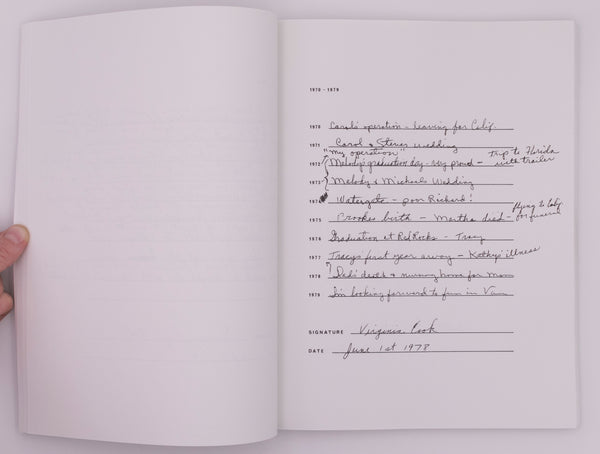 1970 - 1979
1970 Carol's operation - leaving for Calif.
1971 Carol & Steves Wedding
"My operation"
1972 Melody's graduation day - very proud - trip to Florida with trailer
1973 Melody & Michaels Wedding
1974 Watergate - poor Richard!
1975 Brookes birth - Martha died - flying to Calif. for funeral
1976 Graduation at Red Rocks - Tracy
1977 Tracys first year away - Kathys' illness
1978 Dads' death & nursing home for Mom
1979 I'm looking forward to fun in Van
SIGNATURE Virginia Cook
DATE June 1st 1978